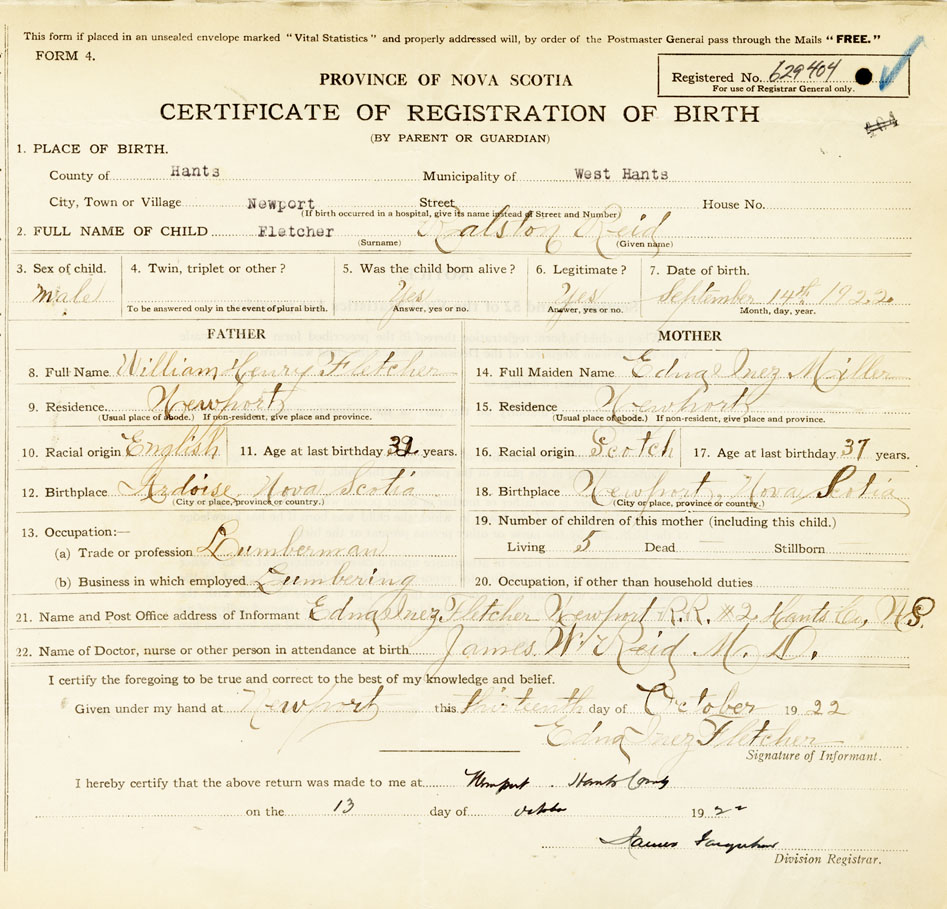 This form if placed in an unsealed envelope marked "Vital Statistics" and properly addressed will, by order of the Postmaster General pass through the Mails "FREE."
FORM 4.
Registered No. 629404
For use of Registrar General only.
PROVINCE OF NOVA SCOTIA
CERTIFICATE OF REGISTRATION OF BIRTH
(BY PARENT OR GUARDIAN)
1. PLACE OF BIRTH.
County of Hants Municipality of West Hants
City, Town or Village Newport Street House No.
(If birth occurred in a hospital, give its name instead of Street and Number)
2. FULL NAME OF CHILD Fletcher Ralston Reid
(Surname) (Given name)
3. Sex of child. 4. Twin, triplet or other? 5. Was the child born alive? 6. Legitimate? 7. Date of birth.
Male Yes Yes September 14th 1922
To be answered only in the event of plural birth. Answer, yes or no. Answer, yes or no. Month, day, year.
FATHER
8. Full Name William Henry Fletcher
9. Residence. Newport
(Usual place of abode.) If non-resident, give place and province.
10. Racial origin English 11. Age at last birthday 39 years.
12. Birthplace Ardoise, Nova Scotia
(City or place, province or country.)
13. Occupation:—
(a) Trade or profession Lumberman
(b) Business in which employed Lumbering
MOTHER
14. Full Maiden Name Edna Inez Miller
15. Residence Newport
(Usual place of abode.) If non-resident, give place and province.
16. Racial origin Scotch 17. Age at last birthday 37 years.
18. Birthplace Newport, Nova Scotia
(City or place, province or country.)
19. Number of children of this mother (including this child.)
Living 5 Dead — Stillborn —
20. Occupation, if other than household duties
21. Name and Post Office address of Informant Edna Inez Fletcher Newport R.R. #2 Hants Co, N.S.
22. Name of Doctor, nurse or other person in attendance at birth James W. Reid M. D.
I certify the foregoing to be true and correct to the best of my knowledge and belief.
Given under my hand at Newport this thirteenth day of October 1922
Edna Inez Fletcher
Signature of Informant.
I hereby certify that the above return was made to me at Newport Hants County
on the 13 day of October 1922
James Farquhar
Division Registrar.